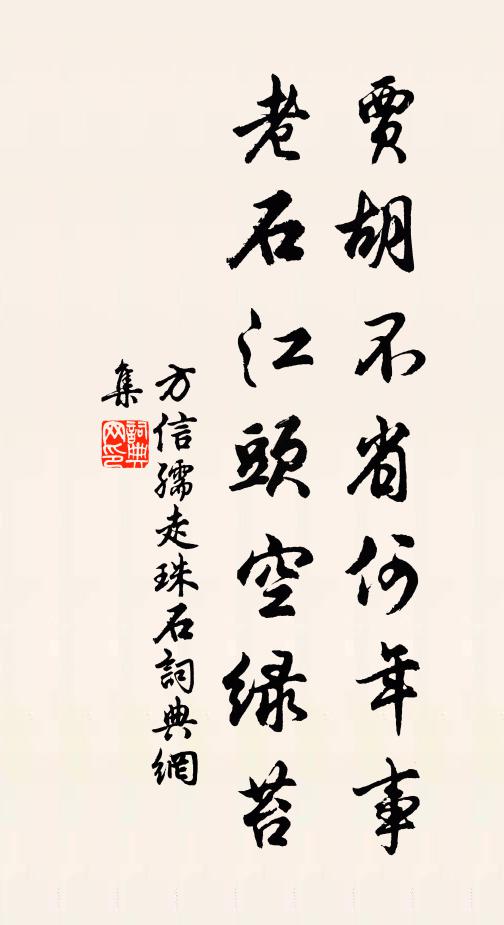 賈胡不省何年事
老石江頭空緑苔
方信孺走珠石詞典網
集
詞典網印